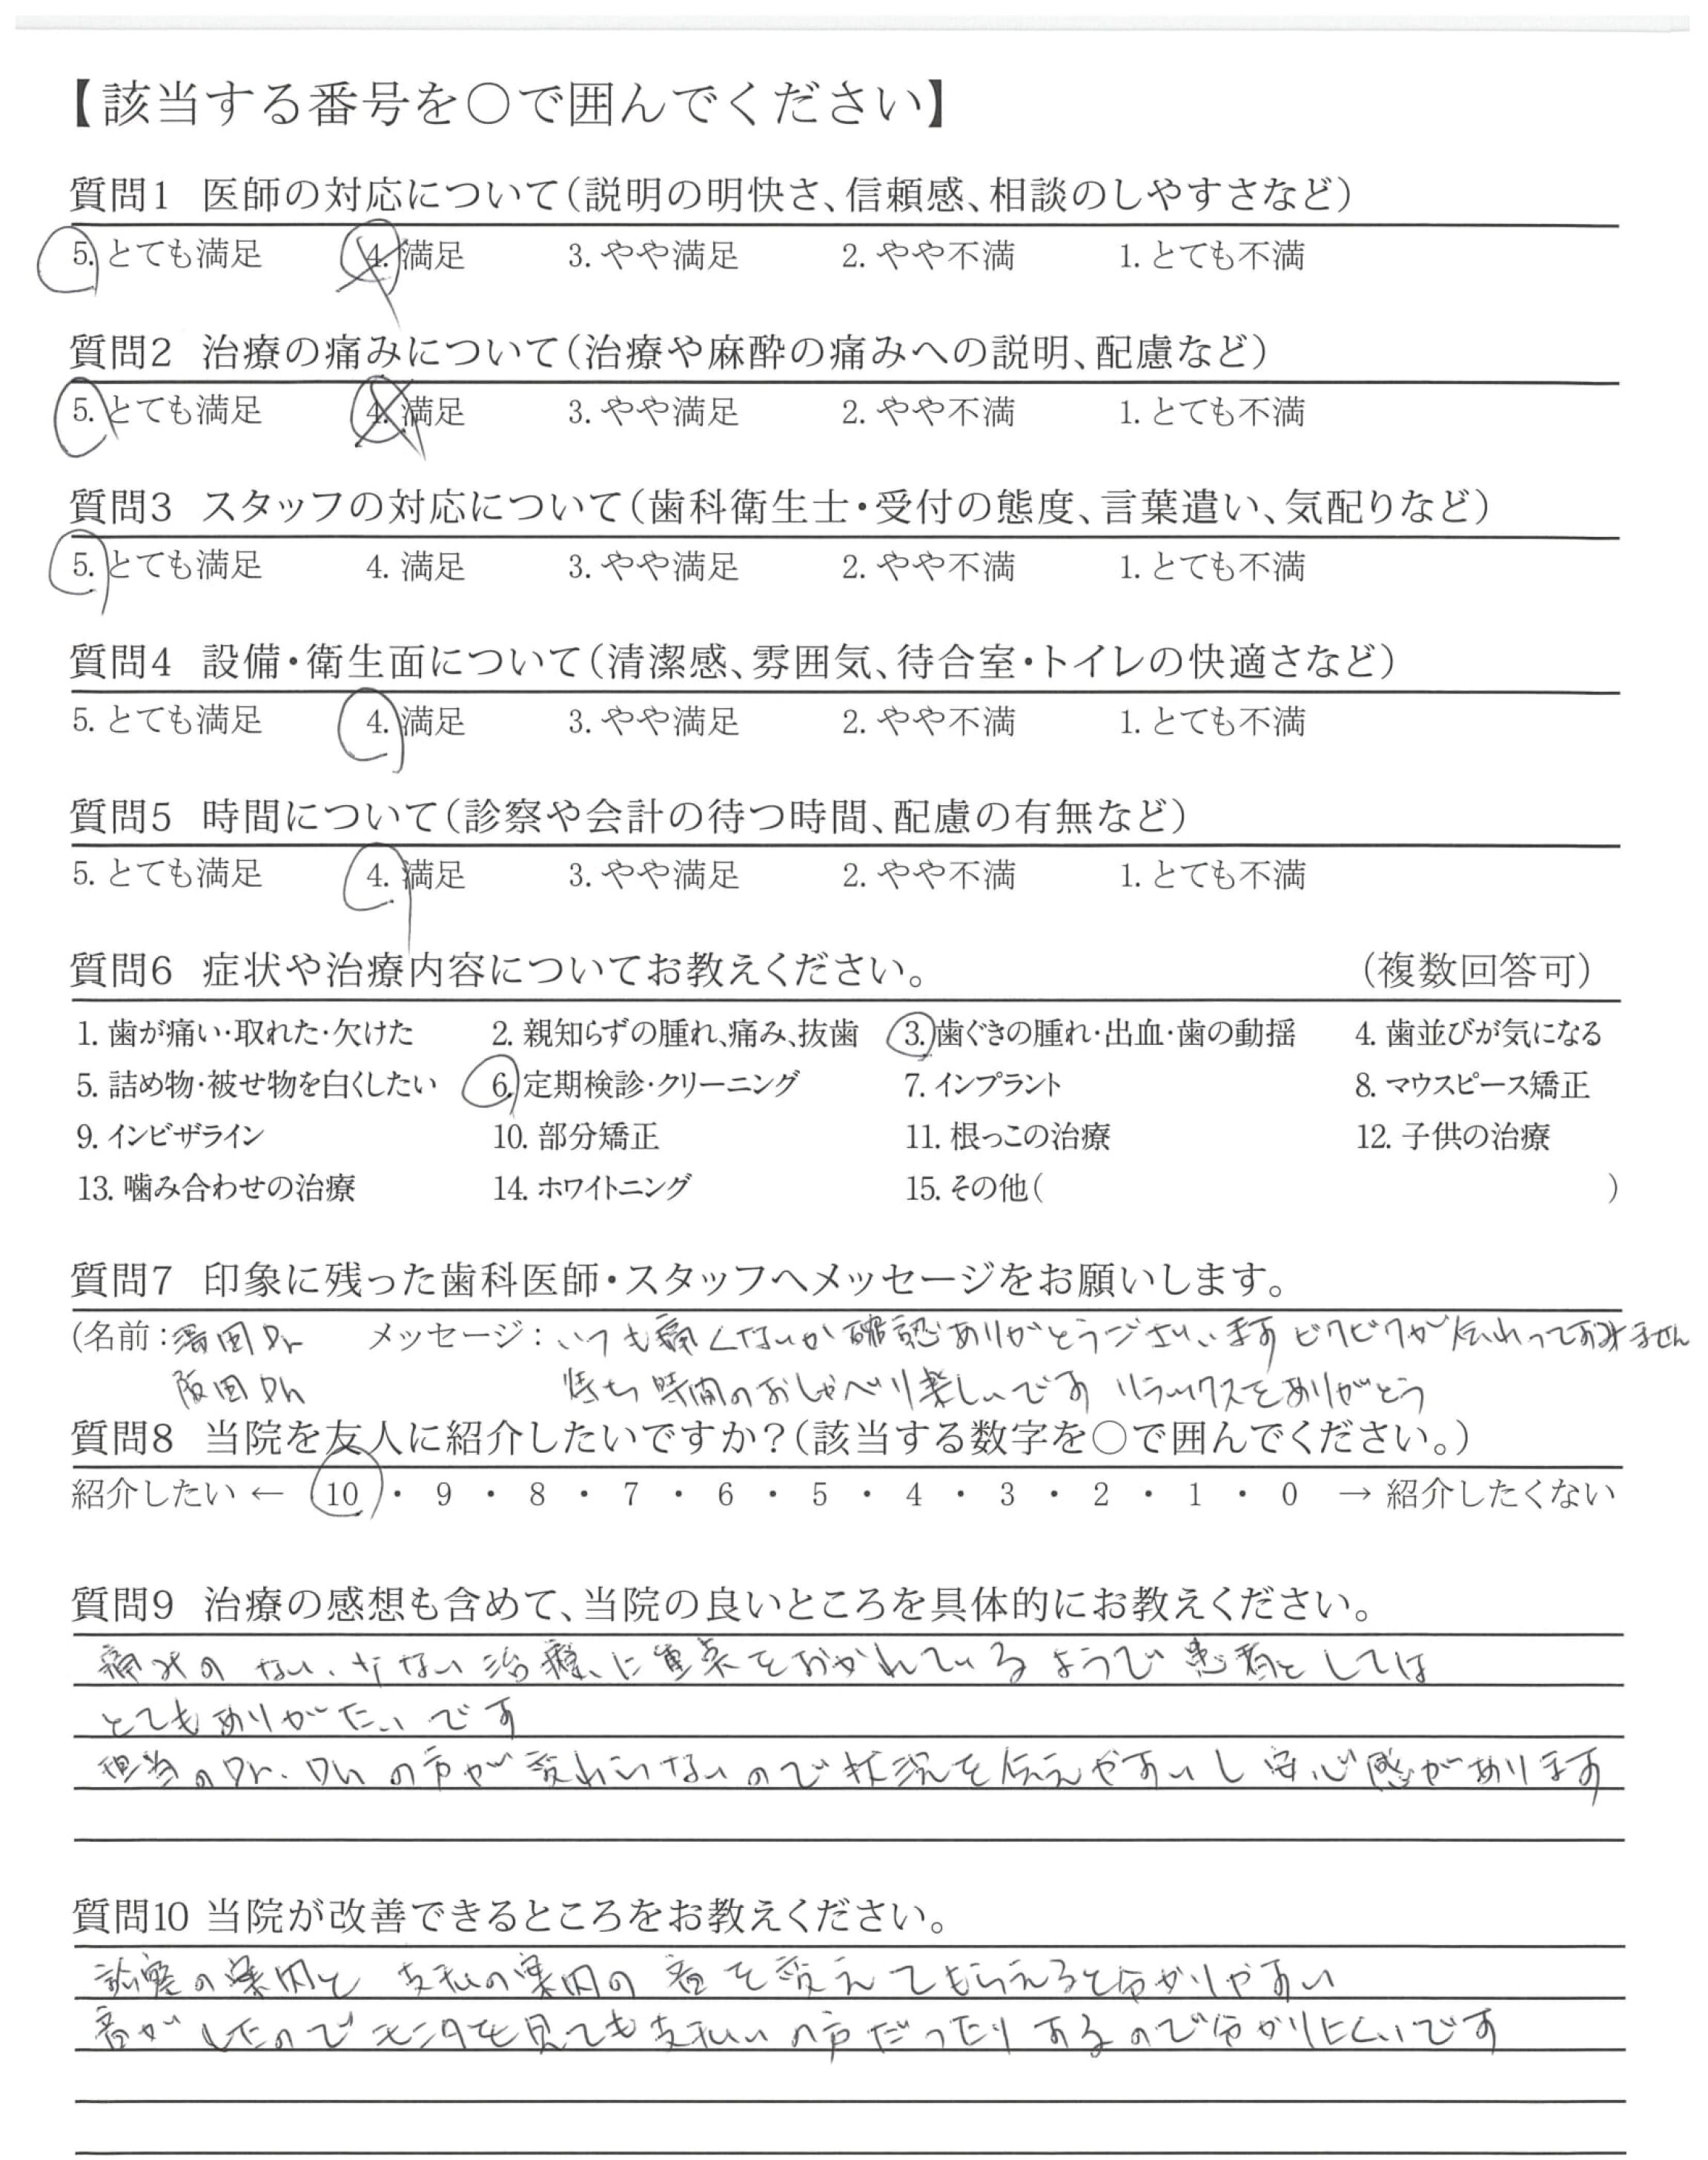 【該当する番号を○で囲んでください】
質問1 医師の対応について(説明の明快さ、信頼感、相談のしやすさなど)
5. とても満足 4. 満足 3. やや満足 2. やや不満 1. とても不満
質問2 治療の痛みについて(治療や麻酔の痛みへの説明、配慮など)
5. とても満足 4. 満足 3. やや満足 2. やや不満 1. とても不満
質問3 スタッフの対応について(歯科衛生士・受付の態度、言葉遣い、気配りなど)
5. とても満足 4. 満足 3. やや満足 2. やや不満 1. とても不満
質問4 設備・衛生面について(清潔感、雰囲気、待合室・トイレの快適さなど)
5. とても満足 4. 満足 3. やや満足 2. やや不満 1. とても不満
質問5 時間について(診察や会計の待つ時間、配慮の有無など)
5. とても満足 4. 満足 3. やや満足 2. やや不満 1. とても不満
質問6 症状や治療内容についてお教えください。 (複数回答可)
1. 歯が痛い・取れた・欠けた 2. 親知らずの腫れ、痛み、抜歯 3. 歯ぐきの腫れ・出血・歯の動揺 4. 歯並びが気になる
5. 詰め物・被せ物を白くしたい 6. 定期検診・クリーニング 7. インプラント 8. マウスピース矯正
9. インビザライン 10. 部分矯正 11. 根っこの治療 12. 子供の治療
13. 噛み合わせの治療 14. ホワイトニング 15. その他( )
質問7 印象に残った歯科医師・スタッフへメッセージをお願いします。
(名前: 田Dr メッセージ: いつも痛くないか確認ありがとうございます ビクビクが伝わってすみません
阪田DH 待ち時間のおしゃべり楽しいです リラックスをありがとう
質問8 当院を友人に紹介したいですか?(該当する数字を○で囲んでください。)
紹介したい ← 10 ・ 9 ・ 8 ・ 7 ・ 6 ・ 5 ・ 4 ・ 3 ・ 2 ・ 1 ・ 0 → 紹介したくない
質問9 治療の感想も含めて、当院の良いところを具体的にお教えください。
痛みの ない、少ない治療に重点をおかれているようで 患者としては
とてもありがたいです
担当のDr. DHの方が変わらないので状況を伝えやすいし 安心感があります
質問10 当院が改善できるところをお教えください。
診察の案内と 支払の案内の 音を変えてもらえると分かりやすい
音がしたのでモニタを見ても支払いの方だったりするので分かりにくいです